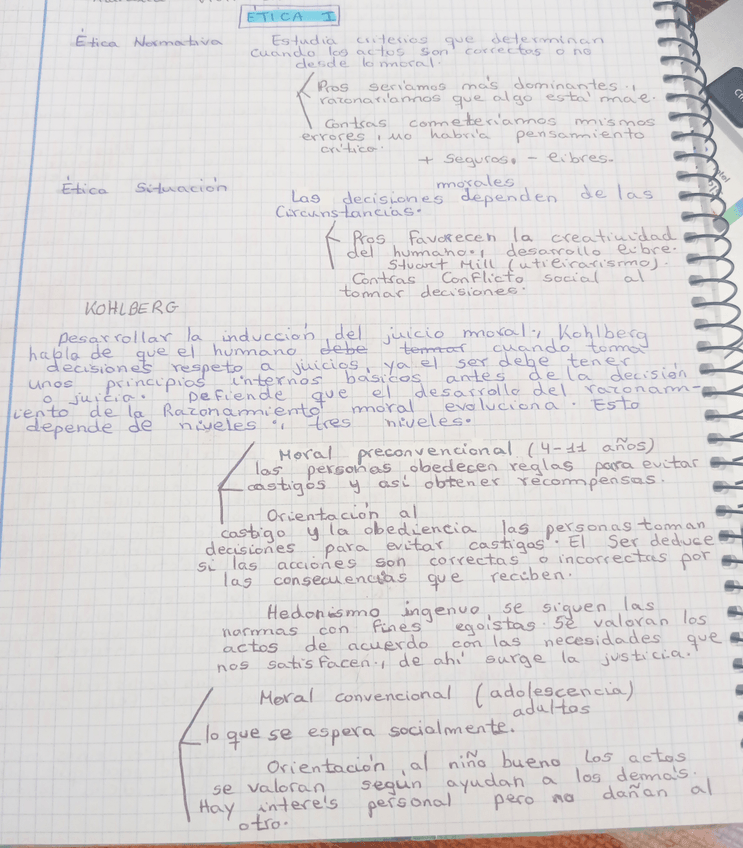 ÉTICA I
Ética Normativa Estudia criterios que determinan
cuando los actos son correctos o no
desde lo moral.
Pros seríamos más dominantes.,
razonaríannos que algo está mae.
Contras cometeríannos mismos
errores, no habría pensamiento
crítico.
+ seguros, - eibres.
Ética Situación morales
Las decisiones dependen de las
Circunstancias.
Pros favorecen la creatividad
del humano., desarollo eibre.
Stuart Mill (utieirarismo).
Contras Conflicto social al
tomar decisiones.
KOHLBERG
Desarrollar la inducción del juicio moral., Kohlberg
habla de que el humano debe tomar cuando toma
decisiones respeto a juicios, ya el ser debe tener
unos principios internos básicos antes de la decisión
o juicio. Defiende que el desarrollo del razonam-
iento de la Razonamiento moral evoluciona. Esto
depende de niveles., tres niveles.
Moral preconvencional (4-11 años)
las personas obedecen reglas para evitar
castigos y así obtener recompensas.
Orientación al
castigo y la obediencia las personas toman
decisiones para evitar castigos. El ser deduce
si las acciones son correctas o incorrectas por
las consecuencias que reciben.
Hedonismo ingenuo, se siguen las
normas con fines egoístas. Se valoran los
actos de acuerdo con las necesidades que
nos satisfacen., de ahí surge la justicia.
Moral convencional (adolescencia)
adultos
lo que se espera socialmente.
Orientación al niño bueno los actos
se valoran según ayudan a los demás.
Hay interés personal pero no dañan al
otro.